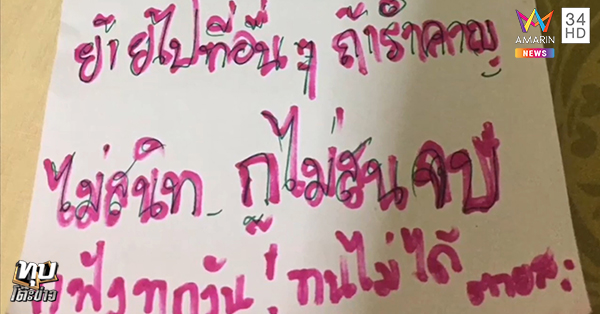 ย้ายไปที่อื่น ๆ ถ้ารำคาญ
ไม่สนิท กูไม่สน จบ
ฟังทุกวัน ทนไม่ได้
AMARIN
NEWS
34
HD
ทุบ
โต๊ะข่าว